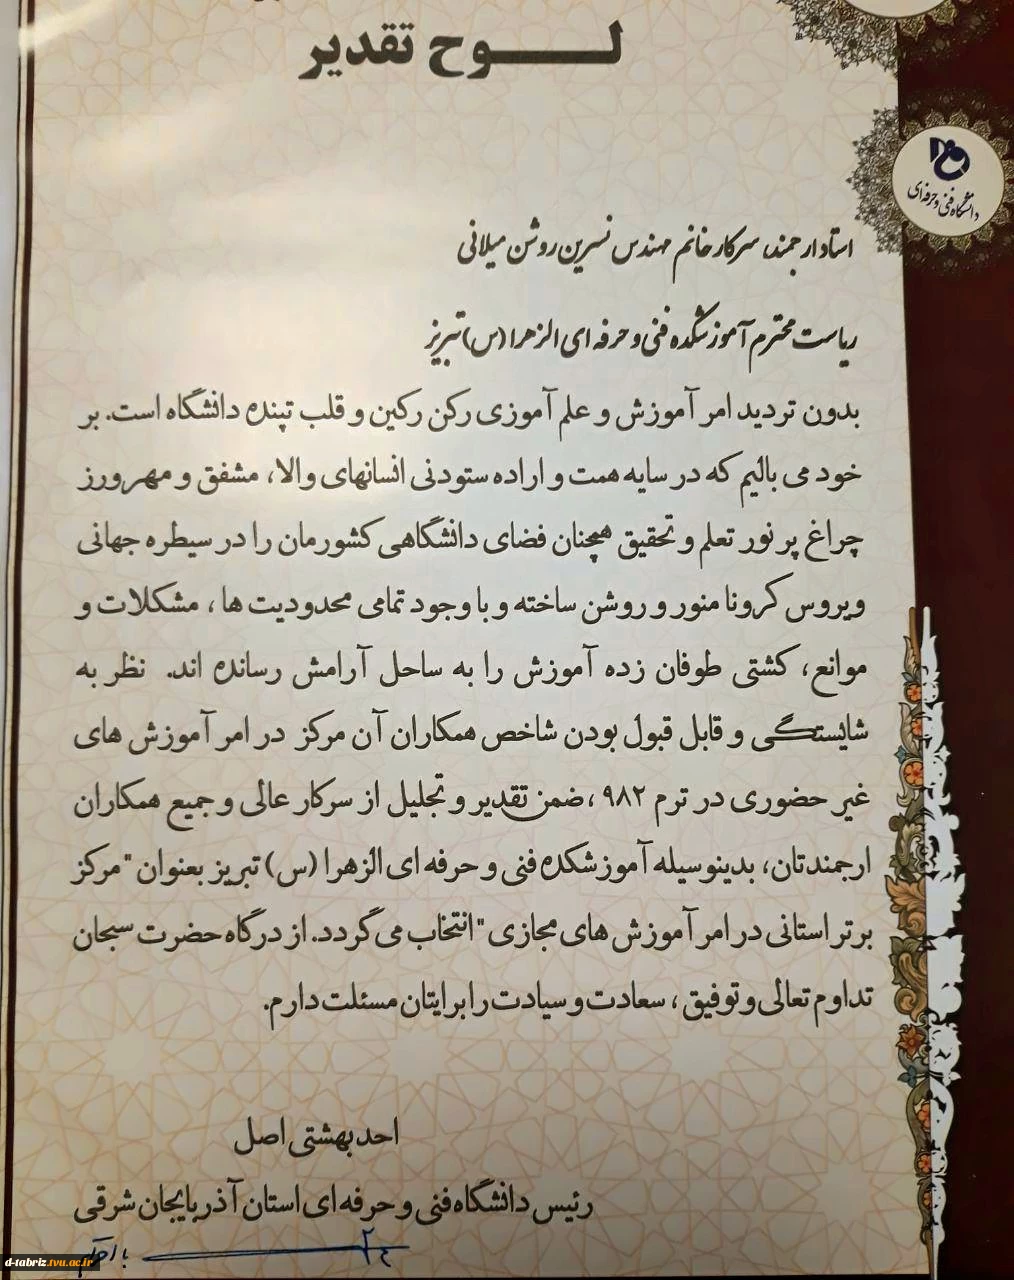 لوح تقدیر
دانشگاه فنی و حرفه ای
استاد ارجمند، سرکار خانم مهندس نسرین روشن میلانی
ریاست محترم آموزشکده فنی و حرفه ای الزهرا (س) تبریز
بدون تردید امر آموزش و علم آموزی رکن رکین و قلب تپنده دانشگاه است. بر
خود می بالیم که در سایه همت و اراده ستودنی انسانهای والا، مشفق و مهرورز
چراغ پر نور تعلم و تحقیق همچنان فضای دانشگاهی کشورمان را در سیطره جهانی
ویروس کرونا منور و روشن ساخته و با وجود تمامی محدودیت ها ، مشکلات و
موانع، کشتی طوفان زده آموزش را به ساحل آرامش رسانده اند. نظر به
شایستگی و قابل قبول بودن شاخص همکاران آن مرکز در امر آموزش های
غیر حضوری در ترم ۹۸۲ ،ضمن تقدیر و تجلیل از سرکار عالی و جمیع همکاران
ارجمندتان، بدینوسیله آموزشکده فنی و حرفه ای الزهرا (س) تبریز بعنوان "مرکز
برتر استانی در امر آموزش های مجازی" انتخاب می گردد. از درگاه حضرت سبحان
تداوم تعالی و توفیق ، سعادت و سیادت را برایتان مسئلت دارم.
احد بهشتی اصل
رئیس دانشگاه فنی و حرفه ای استان آذربایجان شرقی
با احترام
d-tabriz.tvu.ac.ir